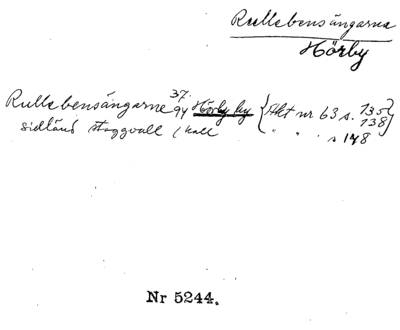 Rullebensängarna
Hörby
Rullebensängarne 37. 94 Hörby by {Akt nr 63 s. 135 138}
sidländ staggvall / kall " " " s 148
Nr 5244.